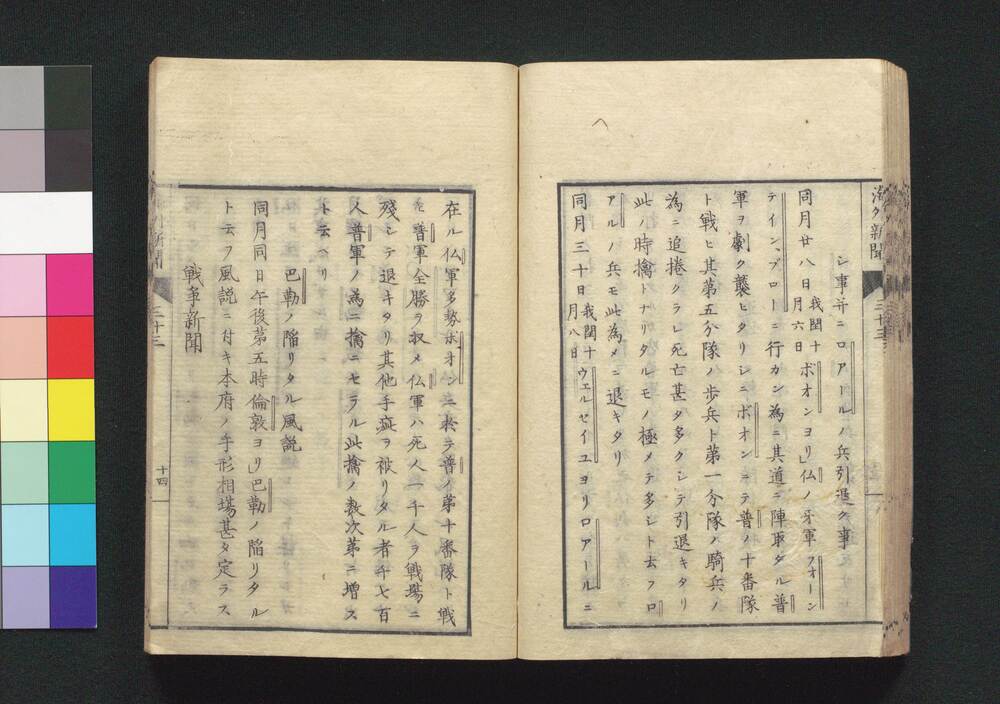 海外新聞
三十三
シ事并ニロアールノ兵引退ク事
同月廿八日我閏十月六日ボオンヨリ仏ノ牙軍フオーン
テインブローニ行カン為ニ其道ニ陣取タル普
軍ヲ劇ク襲ヒタリシニボオンニテ普ノ十番隊
ト戦ヒ其第五分隊ノ歩兵ト第一分隊ノ騎兵ノ
為ニ追捲クラレ死亡甚タ多クシテ引退キタリ
此ノ時擒トナリタルモノ極メテ多シト云フロ
アルノ兵モ此為メニ退キタリ
同月三十日我閏十月八日ウエルセイユヨリロアールニ
在ル仏軍多勢ボオンニ於テ普ノ第十番隊ト戦
ヒ普軍全勝ヲ収メ仏軍ハ死人一千人ヲ戦場ニ
残シテ退キタリ其他手疵ヲ被リタル者千七百
人普軍ノ為ニ擒ニセラル此擒ノ数次第ニ増ス
ト云ヘリ
巴勒ノ陥リタル風説
同月同日午後第五時倫敦ヨリ巴勒ノ陥リタル
ト云フ風説ニ付キ本府ノ手形相場甚タ定ラス
戦争新聞
三十三
十四